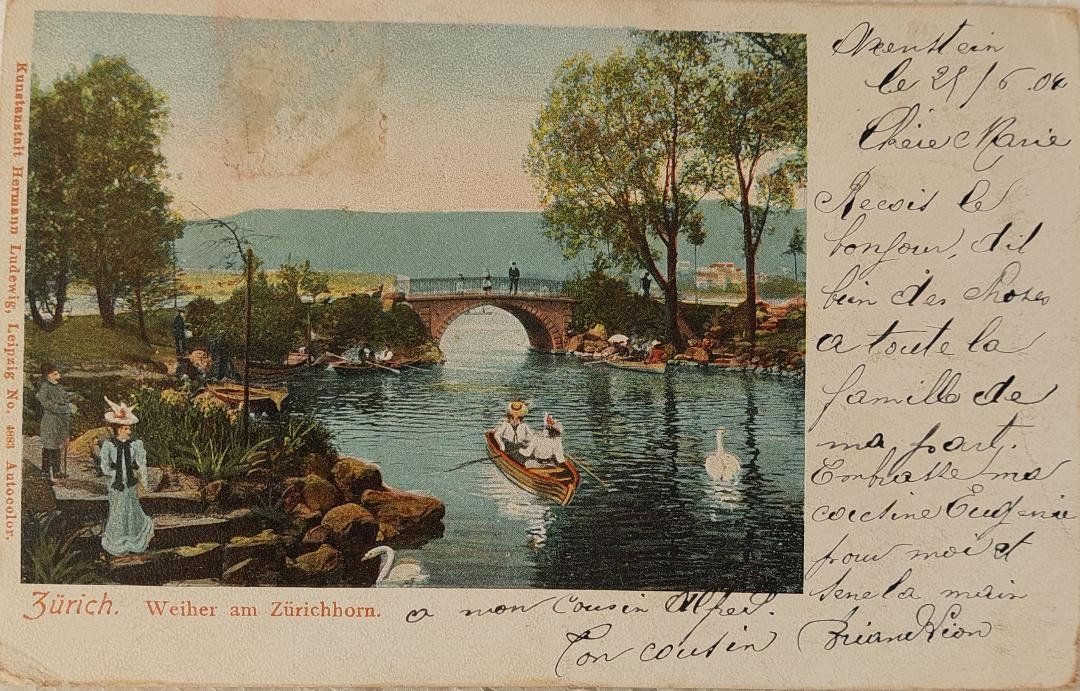 Kunstanstalt Hermann Ludewig, Leipzig No. 4983 Autocolor.
Axenstein
le 25/6.04
Chère Marie
Recois le
bonjour, dit
bien des choses
a toute la
famille de
ma part.
Embrasse ma
cousine Eugenie
pour moi et
serre la main
a mon Cousin Alfred.
Ton cousin
Zürich. Weiher am Zürichhorn.